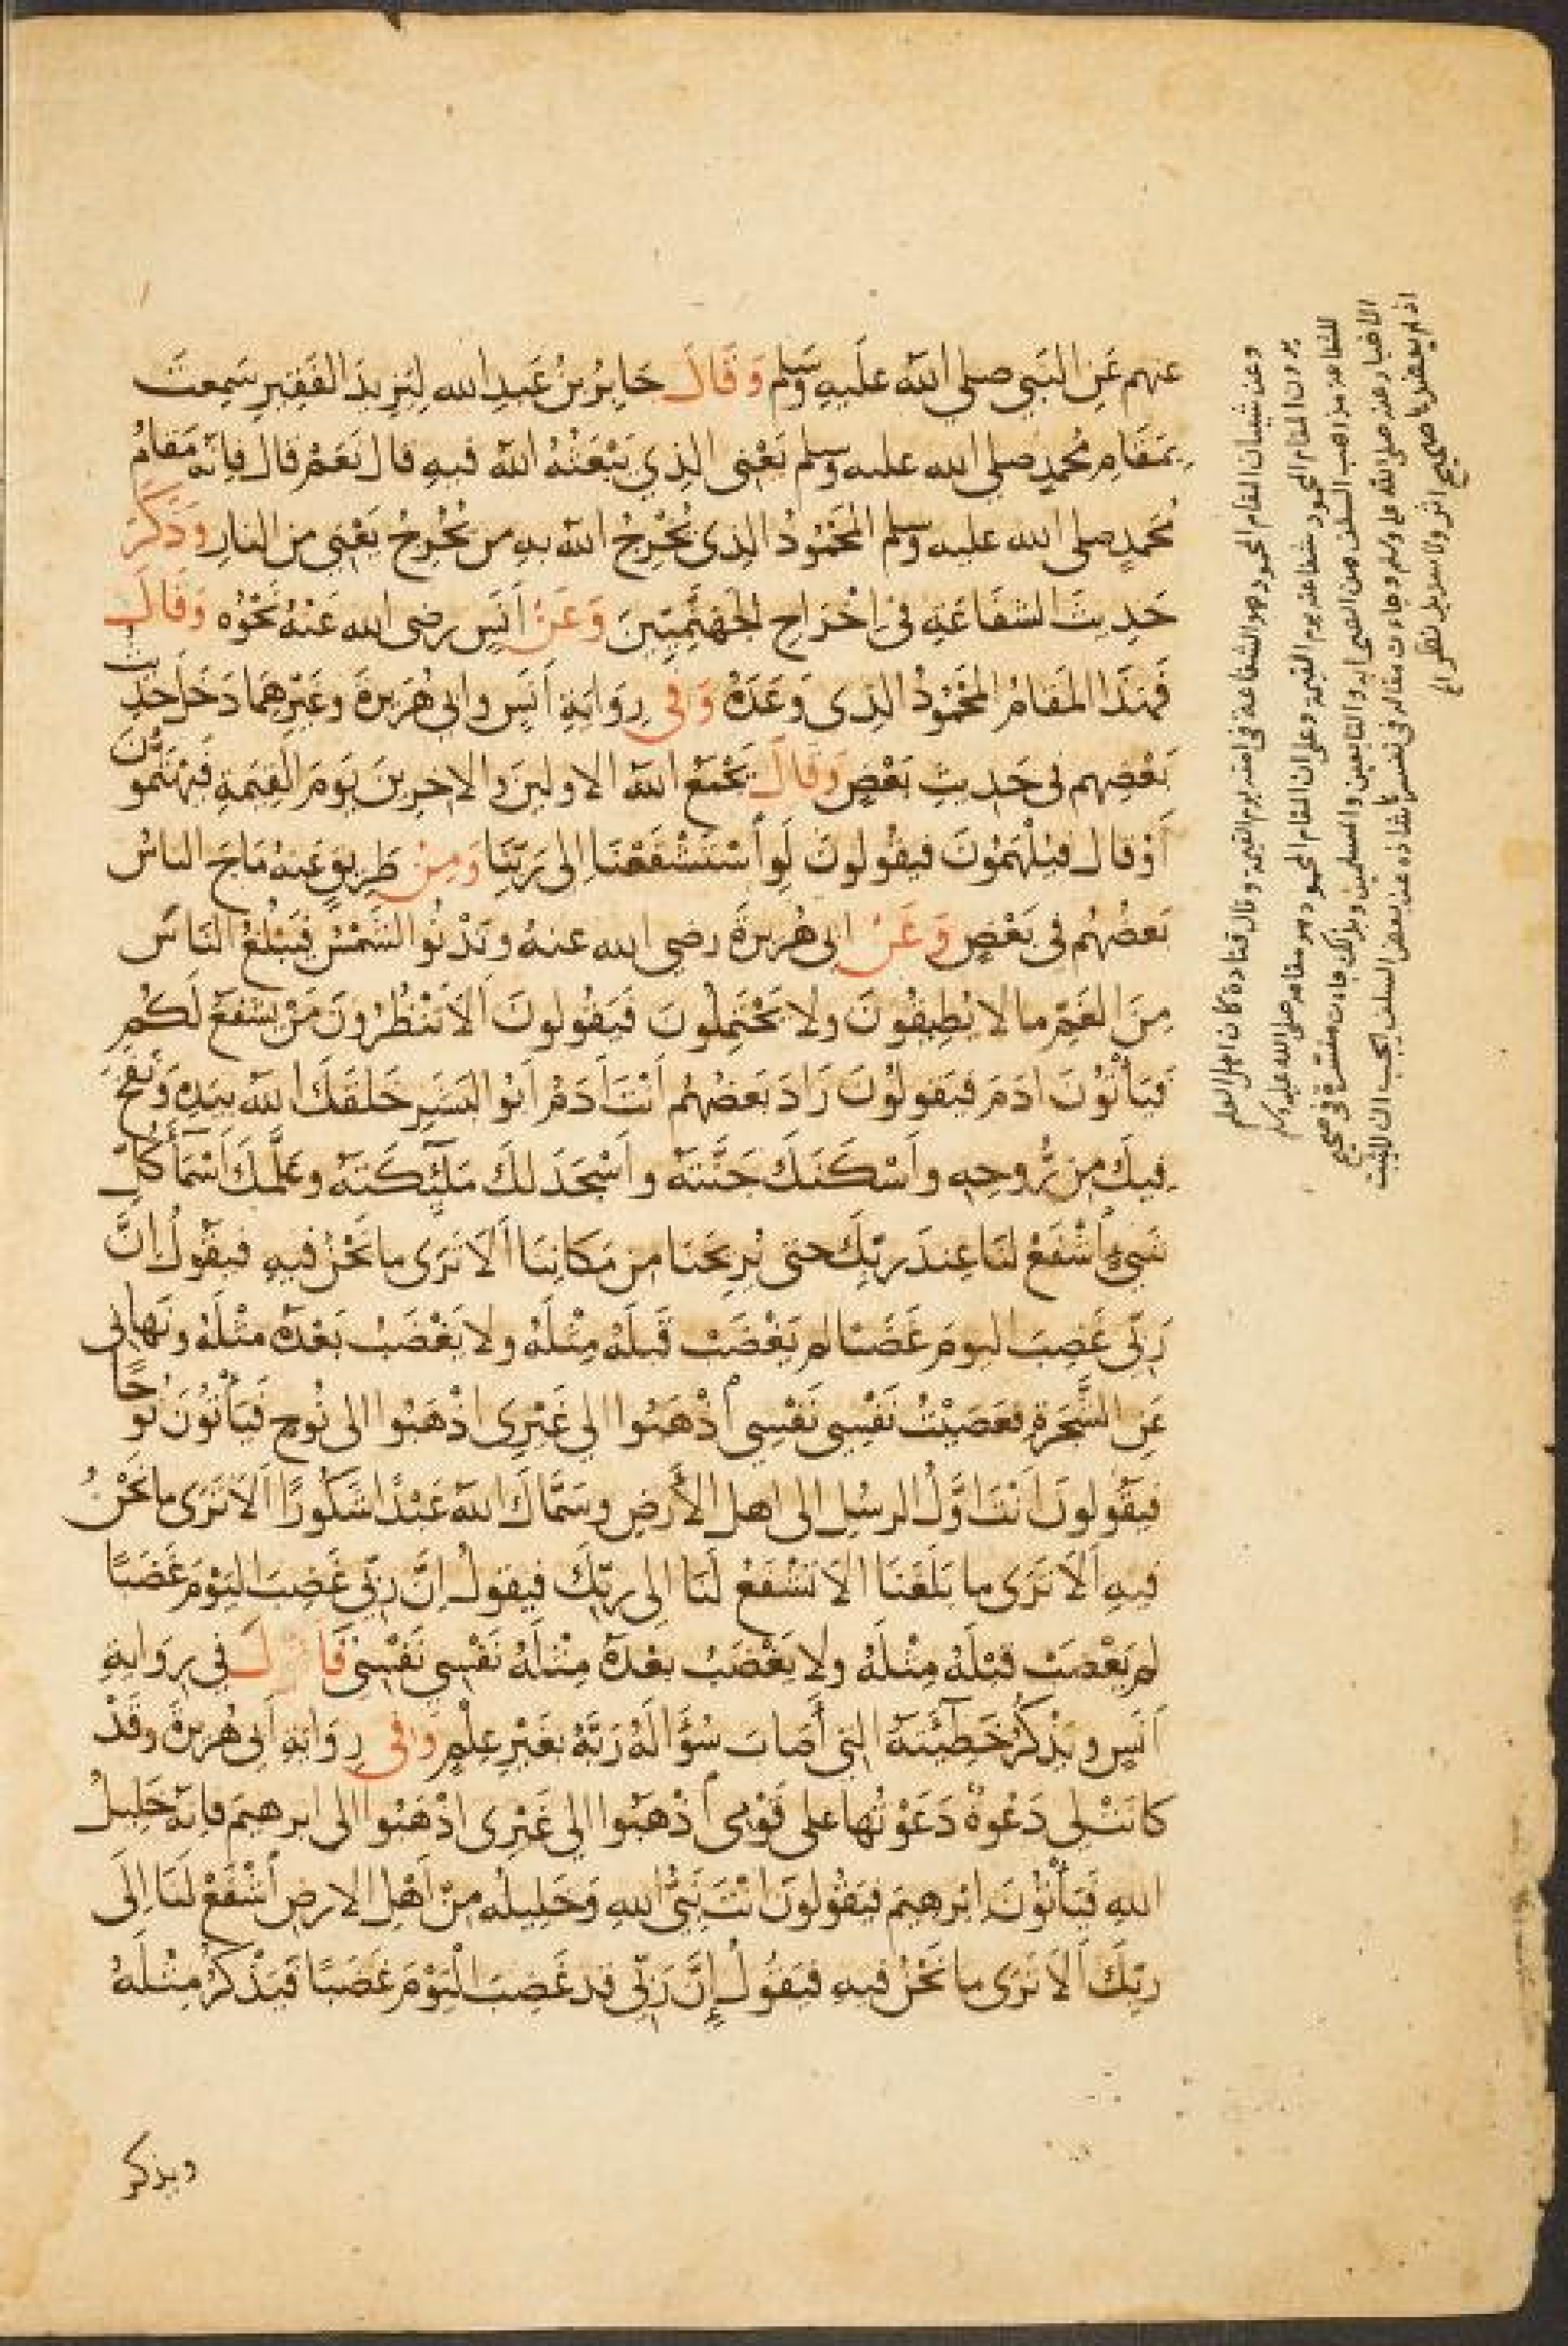 عنهم عَنِ النَبي صلى الله علَيهِ وَسَلم وَقَالَ جَابِرُ بنُ عَبدِ الله لِيَزِيدَ الفَقيرِ سَمِعتَ
بِمَقَامِ مُحمدٍ صلى الله عليه وسلم يَعْنِى الذِي يَبْعَثُهُ اللهُ فيهِ قال نَعَمْ قال فإنّه مَقامُ
مُحمدٍ صلى الله عليه وسلم المَحْمُودُ الذِى يُخْرِجُ اللهُ بهِ مَن يُخْرِجُ يَعْنِى مِن النارِ وَذَكَرَ
حَدِيثَ الشفَاعَةِ فى إخْرَاجِ الجَهَنَّمِيِّينَ وَعَنْ أنَسٍ رضى الله عَنْهُ نَحْوُه وَقَالَ
فَهَذَا المَقامُ المَحْمُودُ الذِى وَعَدَهُ وَفِي رِوَايَةِ أنَسٍ وابى هُرَيرَةَ وغَيْرِهِما دَخَلَ حَدِيثُ
بَعْضِهِم فى حَدِيثِ بَعْضٍ وَقَالَ يَجْمَعُ اللهُ الاولينَ والاخِرِينَ يَومَ القِيَمَةِ فَيَهْتَمُّونَ
أوْ قال فَيُلْهَمُونَ فيقُولونَ لَوِ اسْتَشْفَعْنَا إلى رَبِّنَا وَمِنْ طَرِيقٍ عَنهُ مَاجَ الناسُ
بَعْضُهُم فى بَعْضٍ وَعَنْ ابى هُرَيرَةَ رضى الله عنهُ وتَدْنُوا الشمْسُ فَيَبْلُغُ النَاسَ
مِنَ الغَمِّ ما لا يُطِيقُونَ ولا يَحْتَمِلُونَ فَيَقُولونَ ألاَ تَنْظُرُونَ مَنْ يَشْفَعُ لَكُم
فَيَأْتُونَ ادَمَ فيَقولُونَ زَادَ بَعضُهُم أنْتَ ادَمُ أبُو البَشَرِ خَلَقَكَ اللهُ بيَدِهِ وَنَفَخَ
فِيكَ مِن رُّوحِهِ وأسْكَنَكَ جَنَّتَهُ وأسْجَدَ لكَ مَلَئِكَتَهُ وعَلَّمكَ أسْمَأَ كلِّ
شىءٍ اشْفَعْ لنَا عِندَ ربِّكَ حتى يُرِيحَنَا مِن مَكَانِنَا ألاَ تَرَى ما نَحْنُ فيهِ فيقُولُ إنَّ
رَبِّى غَضِبَ اليومَ غَضَبًا لم يَغْضَبْ قَبلَهُ مِثْلَهُ ولا يَغْضَبُ بَعْدَهُ مثْلَهُ ونَهانِى
عَنِ الشَّجَرَةِ فعَصَيْتُ نَفْسِى نَفْسِى اذْهَبُوا الى غَيْرِى اذْهَبُوا الى نُوحٍ فَيَأْتُونَ نُوحًا
فيَقُولونَ انْتَ اوَّلُ الرسُلِ الى اهلِ الأرضِ وسَمَّاكَ اللهُ عَبْدًا شَكُورًا ألاَ تَرَى ما نَحْنُ
فيهِ ألاَ تَرَى ما بَلَغَنَا ألاَ تَشْفَعُ لَنَا إلى ربِّكَ فيقولُ إنَّ رَبِّى غَضِبَ اليَوْمَ غَضَبًا
لم يَغْضَبْ قَبْلَهُ مِثْلَهُ ولا يَغْضَبُ بعْدَهُ مِثْلَهُ نَفْسِى نَفْسِى قَالَ في رِوَايةِ
أنَسٍ ويَذْكُرُ خَطِيْئَتَهُ التى أصَابَ سُؤَالَهُ رَبَّهُ بغَيْرِ عِلْمٍ وَفِى رِوَايَةِ أبى هُرَيرَةَ وقَدْ
كانَتْ لى دَعْوةٌ دَعَوْتُها على قَوْمِى اذْهَبُوا الى غَيْرِى اذْهَبُوا الى ابرهيمَ فإنّه خَلِيلُ
اللهِ فَيَأْتُونَ ابْرهِيمَ فيَقولونَ انْتَ نَبىُّ اللهِ وَخَلِيلُه مِنْ أهْلِ الارضِ اشْفَعْ لنَا إلَى
ربِّكَ ألاَ تَرَى ما نَحْنُ فيهِ فيَقُولُ إنَّ رَبِّى قد غَضِبَ اليَوْمَ غَضَبًا فَيَذْكُرُ مِثْلَهُ
ويذكر
وعن شيبان المقام المحمود هو الشفاعة في امته يوم القيمة وقال قتادة كان اهل العلم
يرون المقام المحمود شفاعته يوم القيمة وعلى ان المقام المحمود هو مقامه صلى الله عليه وسلم
للشفاعة مذاهب السلف من الصحابة والتابعين والمسلمين وبذلك جاءت مفسرة في صحيح
الاخبار عنه صلى الله عليه وسلم وجاءت مقالة في تفسيرها شاذة عن بعض السلف يجب ان لا تثبت
اذ لم يعضدها صحيح اثر ولا سديد نظر الخ